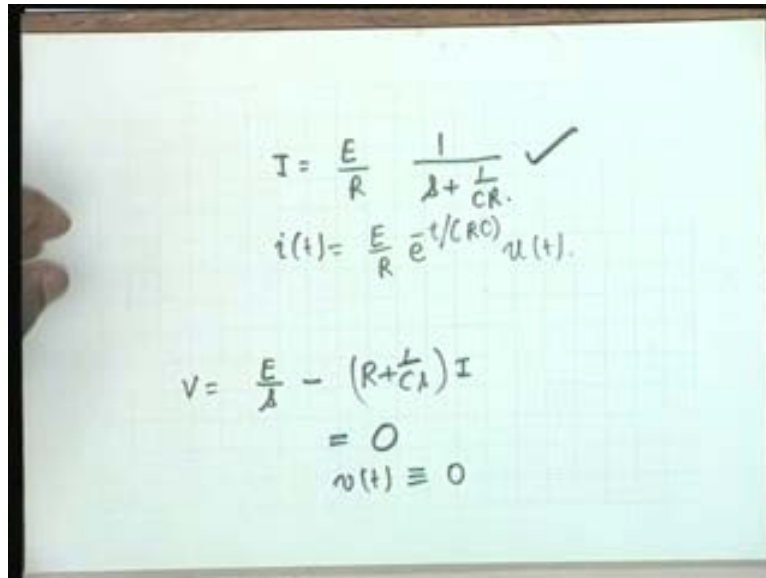 I = E/R 1/(s + 1/CR). ✓
i(t) = E/R e^-t/(RC) u(t).
V = E/s - (R + 1/Cs) I
= 0
v(t) ≡ 0